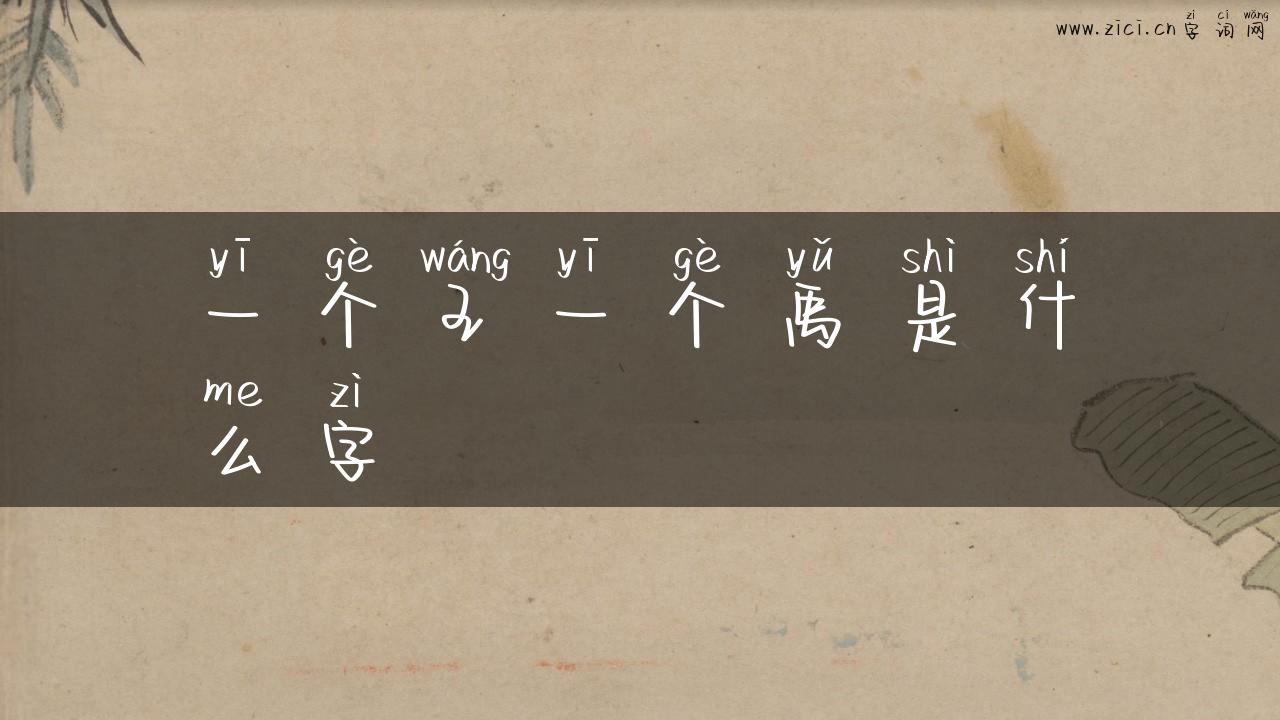 zì cí wǎng
www.zici.cn 字 词 网
yī gè wáng yī gè yǔ shì shí
一 个 王 一 个 禹 是 什
me zì
么 字